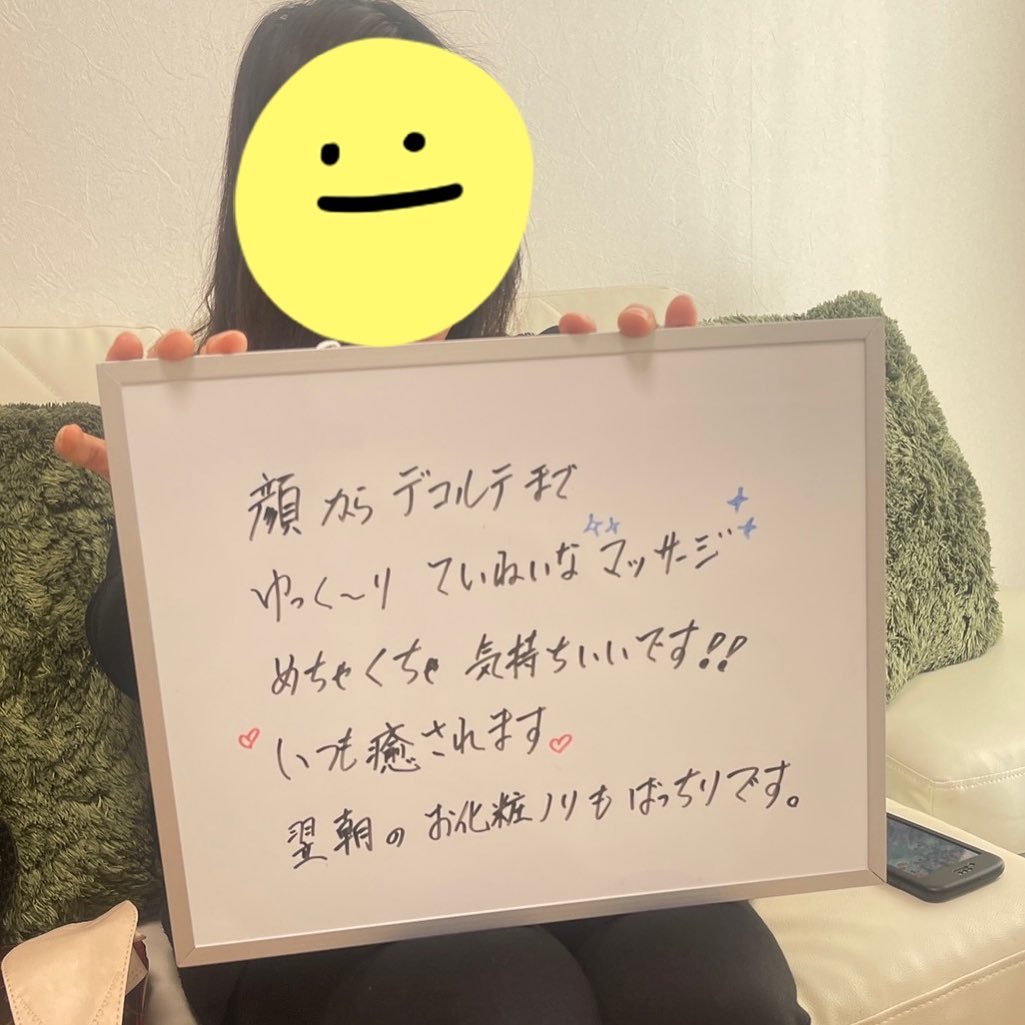 顔からデコルテまで
ゆっく〜り ていねいなマッサージ
めちゃくちゃ 気持ちいいです!!
いつも癒されます
翌朝のお化粧ノリもばっちりです。